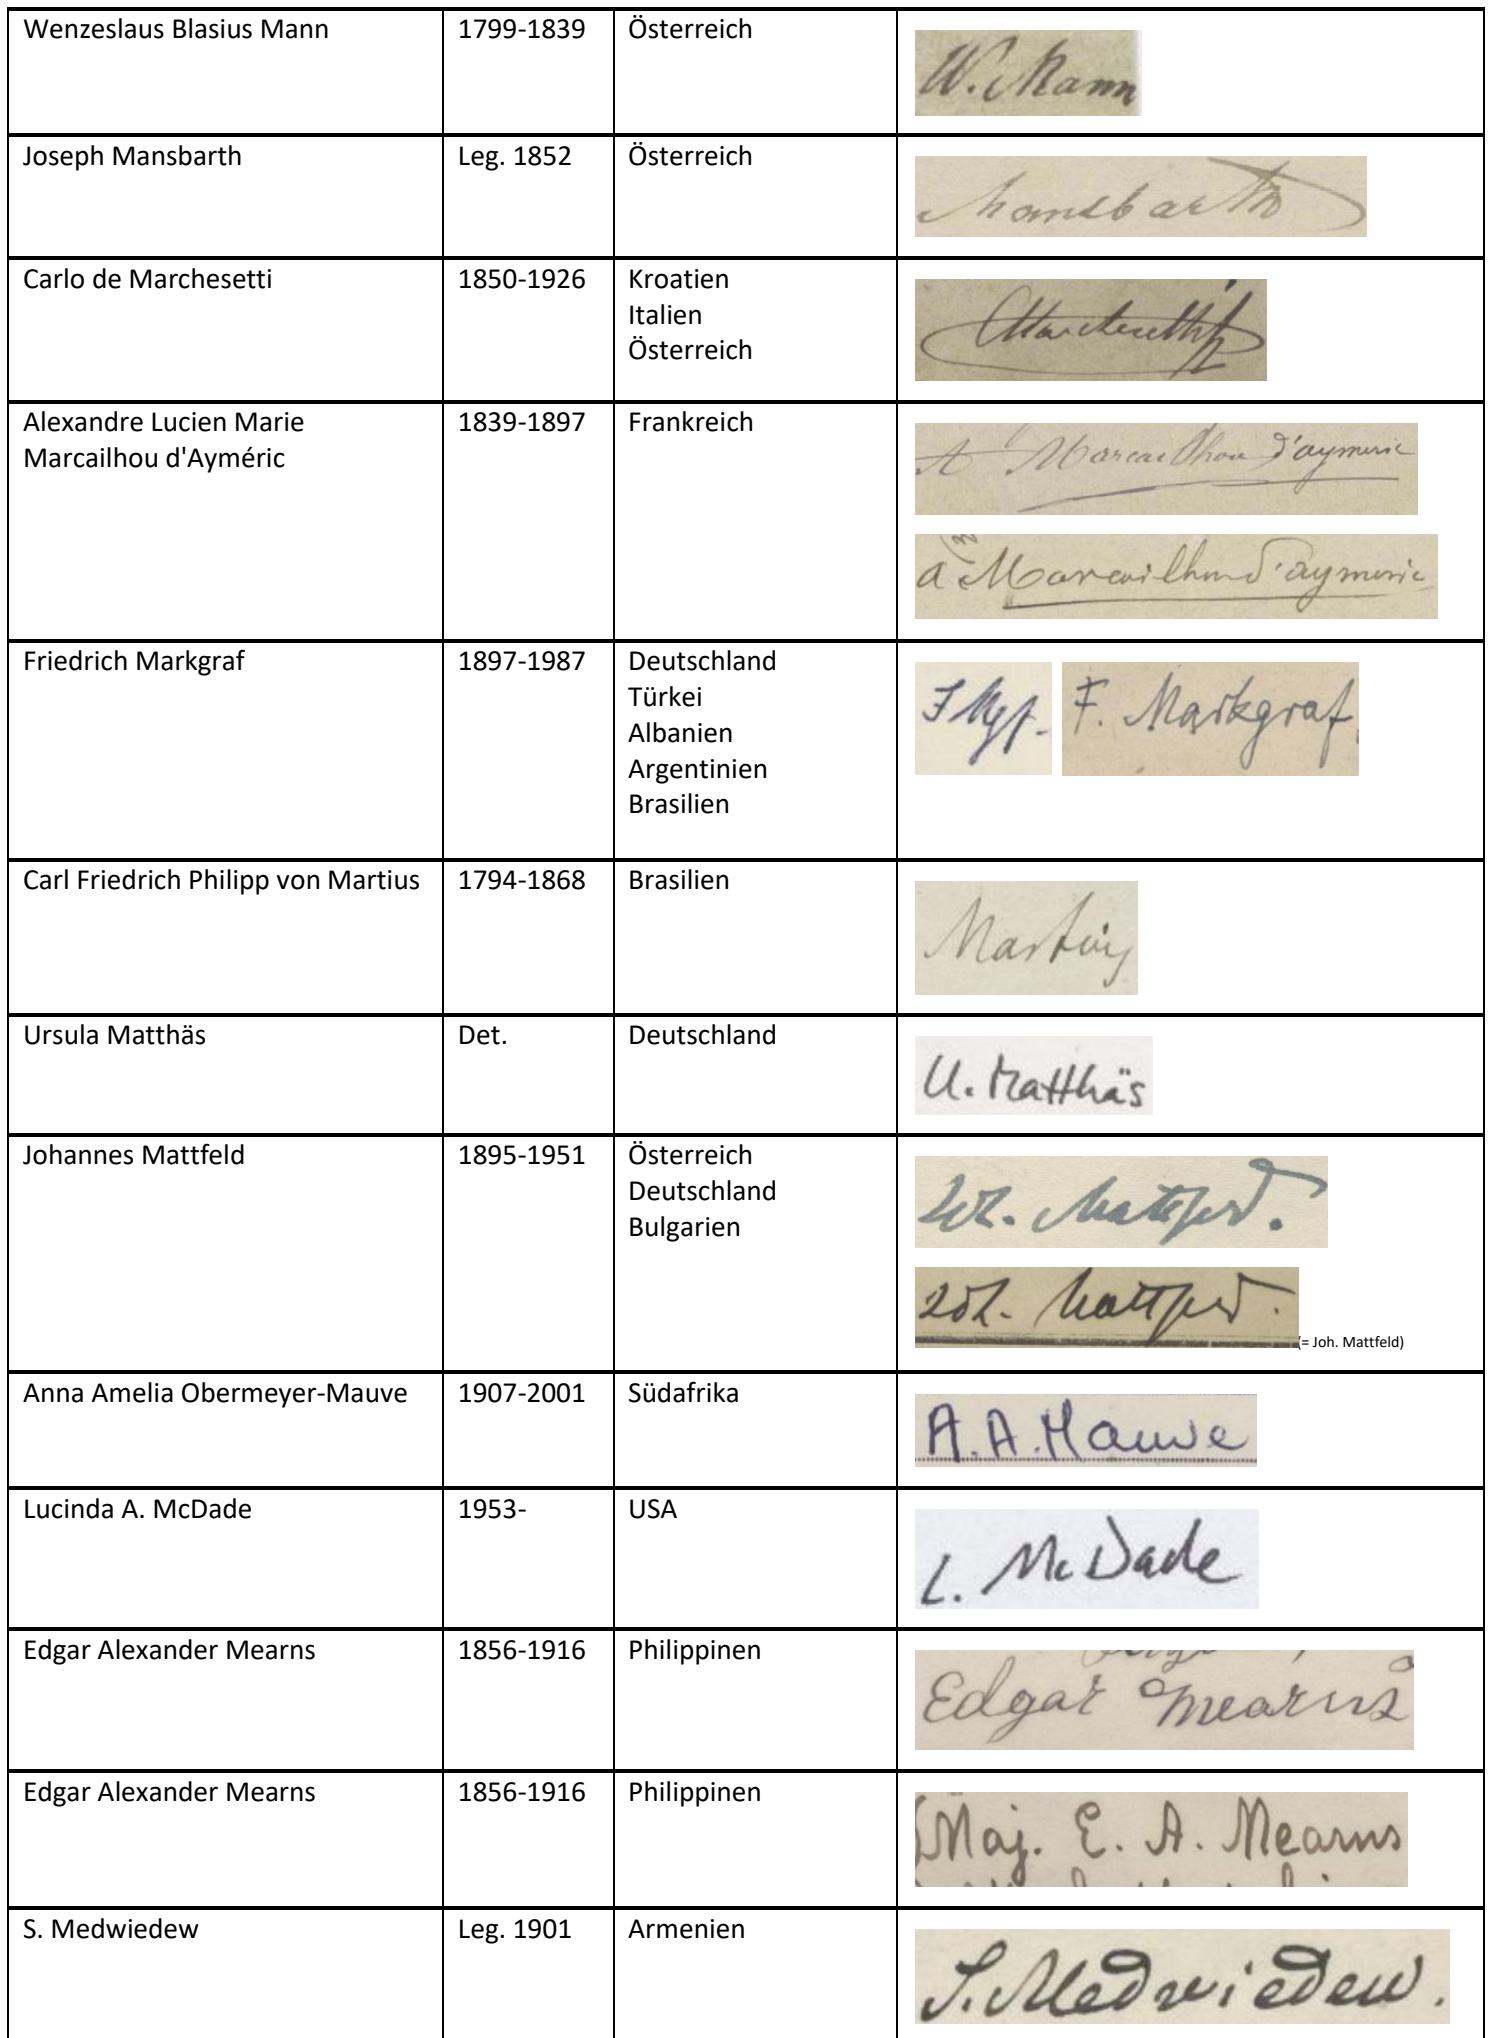 Wenzeslaus Blasius Mann 1799-1839 Österreich W. Mann
Joseph Mansbarth Leg. 1852 Österreich Mansbarth
Carlo de Marchesetti 1850-1926 Kroatien CMarchesetti
Italien
Österreich
Alexandre Lucien Marie 1839-1897 Frankreich A Marcailhou d'aymeric
Marcailhou d'Ayméric
a Marcailhou d'aymeric
Friedrich Markgraf 1897-1987 Deutschland F Mgf. F. Markgraf
Türkei
Albanien
Argentinien
Brasilien
Carl Friedrich Philipp von Martius 1794-1868 Brasilien Martius
Ursula Matthäs Det. Deutschland U. Matthäs
Johannes Mattfeld 1895-1951 Österreich Joh. Mattfeld.
Deutschland
Bulgarien
Joh. Mattfeld.
(= Joh. Mattfeld)
Anna Amelia Obermeyer-Mauve 1907-2001 Südafrika A.A.Mauve
Lucinda A. McDade 1953- USA L. McDade
Edgar Alexander Mearns 1856-1916 Philippinen Edgar Mearns
Edgar Alexander Mearns 1856-1916 Philippinen (Maj. E. A. Mearns
S. Medwiedew Leg. 1901 Armenien S. Medwiedew.